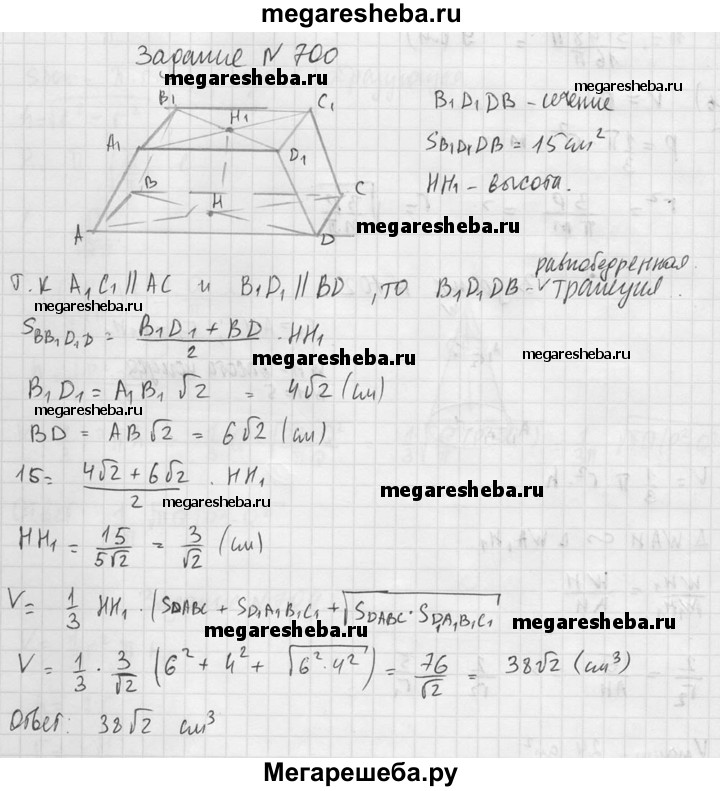 megaresheba.ru
Задание N 700
megaresheba.ru
megaresheba.ru
B1 C1
H1
A1 D1
B C
H
A D
B1D1DB - сечение
SB1D1DB = 15 см²
HH1 - высота.
megaresheba.ru
Т.к A1C1 || AC и B1D1 || BD, то B1D1DB - равнобедренная трапеция.
megaresheba.ru
megaresheba.ru
SBB1D1D = (B1D1 + BD)/2 · HH1
megaresheba.ru
B1D1 = A1B1 √2 = 4√2 (см)
megaresheba.ru
BD = AB√2 = 6√2 (см)
15 = (4√2 + 6√2)/2 · HH1
megaresheba.ru
megaresheba.ru
HH1 = 15/5√2 = 3/√2 (см)
V = 1/3 HH1 · (SDABC + SD1A1B1C1 + √SDABC · SD1A1B1C1
megaresheba.ru
megaresheba.ru
V = 1/3 · 3/√2 (6² + 4² + √6² · 4²) = 76/√2 = 38√2 (см³)
Ответ: 38√2 см³
megaresheba.ru
Мегарешеба.ру